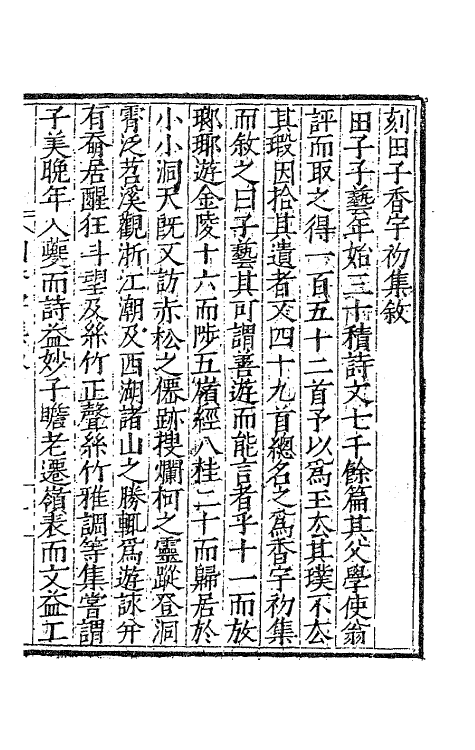 刻田子香宇初集敘
田子子藝年始三十積詩文七千餘篇其父學使翁
評而取之得一百五十二首予以爲玉大其璞不厺
其瑕因拾其遺者又四十九首總名之爲香宇初集
而敘之曰子藝其可謂善遊而能言者乎十一而放
瑯耶遊金陵十六而陟五嶺經八桂二十而歸居於
小小洞天旣又訪赤松之僊跡搜爛柯之靈蹤登洞
霄泛苕溪觀浙江潮及西湖諸山之勝輒爲遊詠幷
有奋居醒狂斗望及絲竹正聲絲竹雅調等集嘗謂
子美晚年入夔而詩益妙子瞻老遷嶺表而文益工